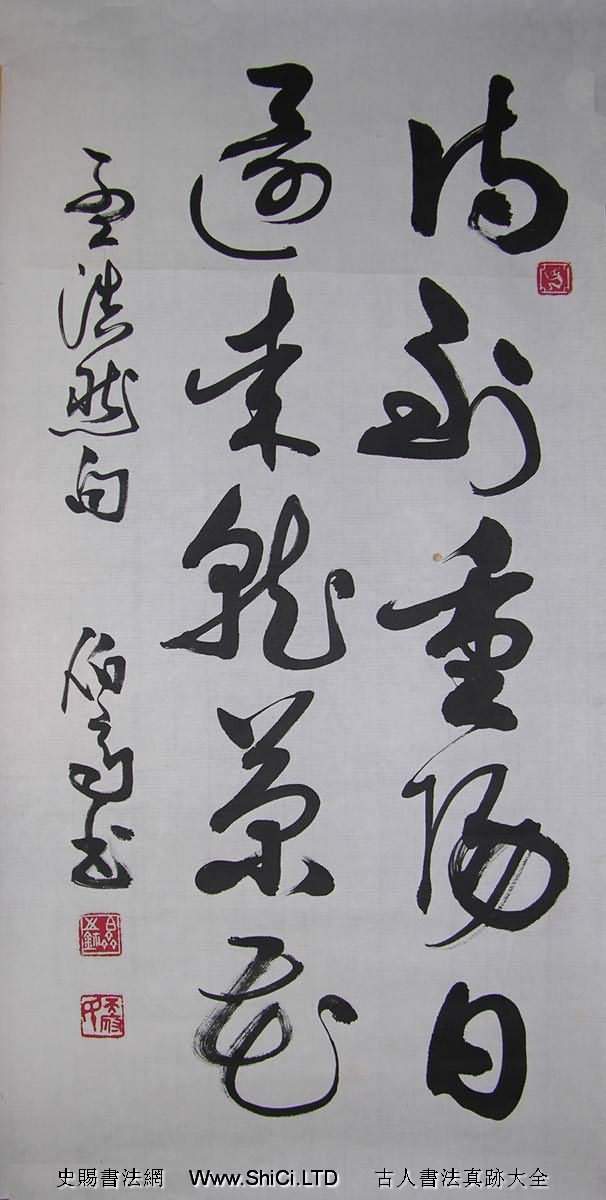 待到重陽日
還来就菊花
孟浩然句
伯高書
史賜書法網 Www.ShiCi.LTD 古人書法真跡大全